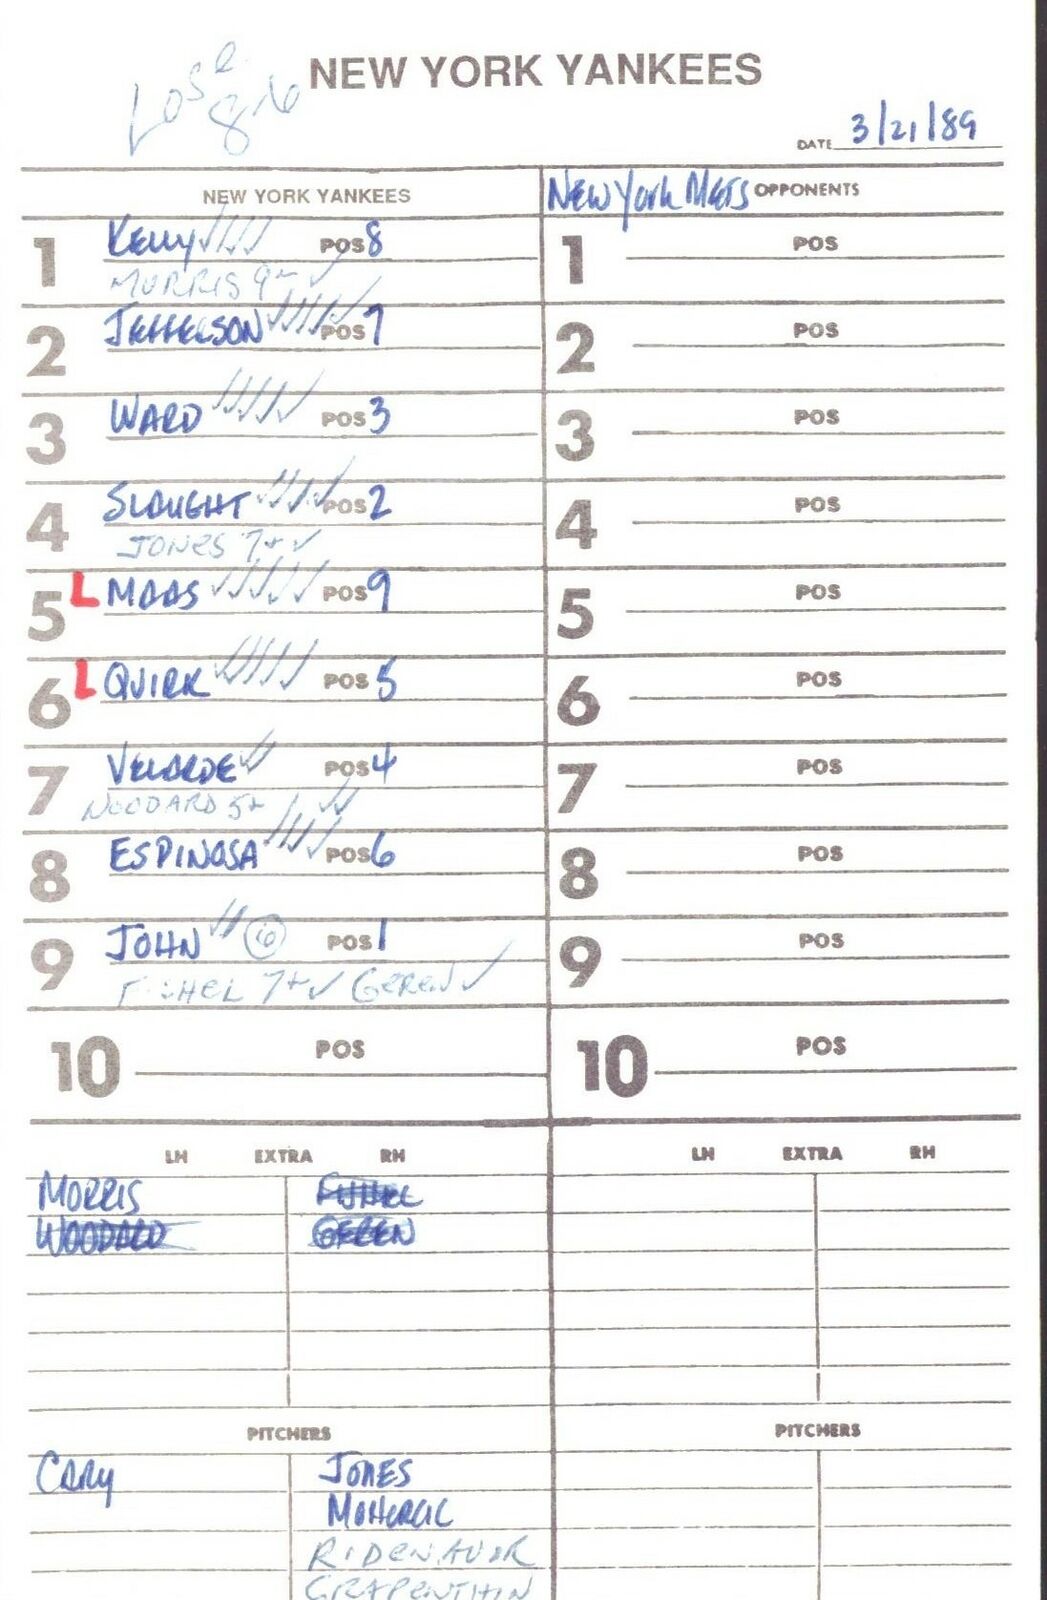 Lose
8-6
NEW YORK YANKEES
DATE 3/21/89
NEW YORK YANKEES
New York Mets OPPONENTS
1 Kelly POS 8
MORRIS 9-
2 JEFFERSON POS 7
3 WARD POS 3
4 SLAUGHT POS 2
JONES 7+
5 L MAAS POS 9
6 L QUIRK POS 5
7 VELARDE POS 4
WOODARD 5+
8 ESPINOSA POS 6
9 JOHN 6 POS 1
FISHEL 7+ GEREN
10 POS
1 POS
2 POS
3 POS
4 POS
5 POS
6 POS
7 POS
8 POS
9 POS
10 POS
LH EXTRA RH
MORRIS FISHEL
WOODARD GEREN
LH EXTRA RH
PITCHERS
CARY JONES
MOHORCIC
RIDENOUR
GRAPENTHIN
PITCHERS